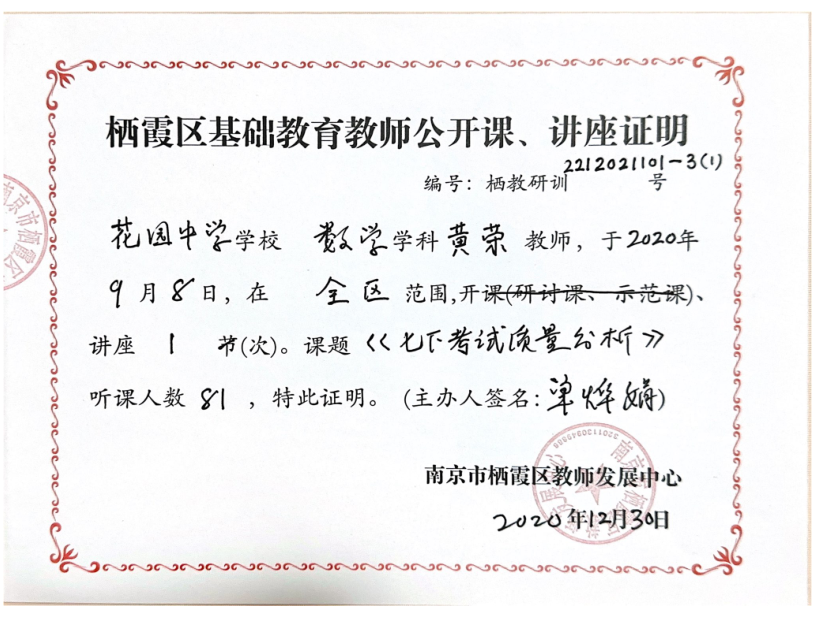 栖霞区基础教育教师公开课、讲座证明
编号：栖教研训2212021101-3(1)号
花园中学学校 数学学科黄荣 教师，于2020年
9月8日，在 全区 范围,开课(研讨课、示范课)、
讲座 1 节(次)。课题《七下考试质量分析》
听课人数 81 ，特此证明。(主办人签名：单烨娟)
南京市栖霞区教师发展中心
2020年12月30日